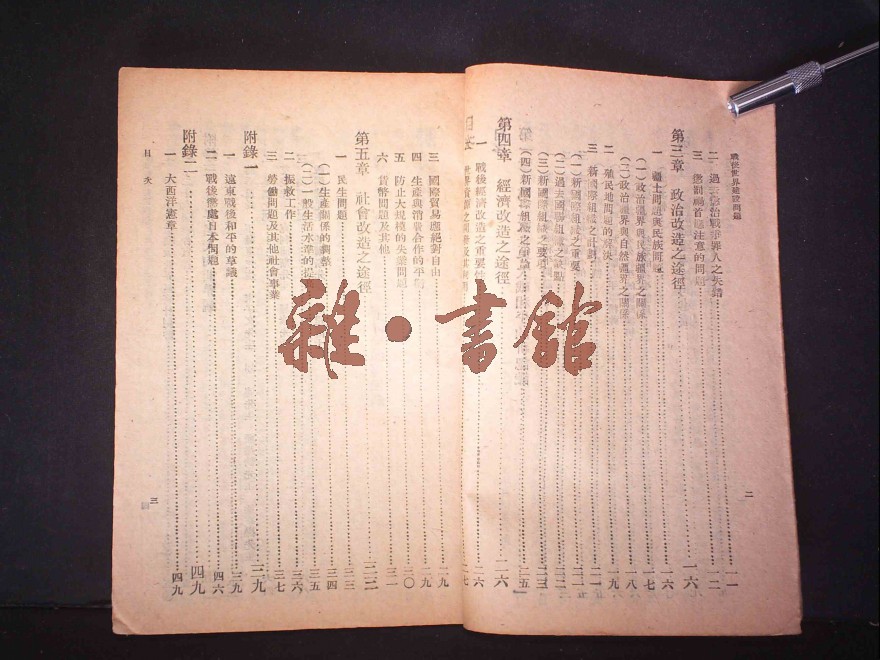 戰後世界建設問題
二 過去懲治戰爭罪人之失錯 一一
三 懲罰禍首應注意的問題 一二
第三章 政治改造之途徑 一六
一 疆土問題與民族問題 一七
(一)政治疆界與民族疆界之關係 一七
(二)政治疆界與自然疆界之關係 一八
二 殖民地問題的解決 一九
三 新國際組織之計劃 二一
(一)新國際組織之重要 二一
(二)過去國際組織之缺點 二二
(三)新國際組織之要項 二三
(四)新國際組織之 二五
第四章 經濟改造之途徑 二六
一 戰後經濟改造之重要性 二六
二
目次
三 國際貿易應絕對自由 二九
四 生產與消費合作的平衡 二九
五 防止大規模的失業問題 三〇
六 貨幣問題及其他 三一
第五章 社會改造之途徑 三三
一 民生問題 三三
(一)生產關係的調整 三四
(二)一般生活水準的提高 三五
二 振救工作 三六
三 勞働問題及其他社會事業 三七
附錄一 三九
一 遠東戰後和平的草議 三九
二 戰後懲處日本問題 四六
附錄二 四九
一 大西洋憲章 四九
三
雜·書館